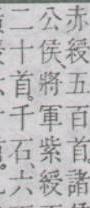 赤綬五百首諸
公侯將軍紫綬
二十首千石六